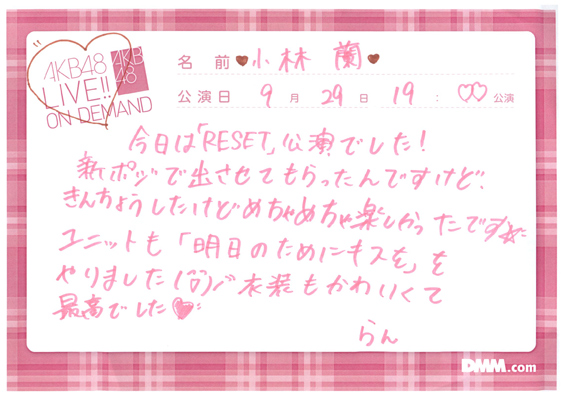 AKB48
LIVE!!
ON DEMAND
AKB
48
名前 ♥小林 蘭♥
公演日 9月29日 19:♡♡公演
今日は「RESET」公演でした!
新ポジで出させてもらったんですけど、
きんちょうしたけどめちゃめちゃ楽しかったです☆
ユニットも「明日のためにキスを」を
やりました(˙˙)/ 衣装もかわいくて
最高でした♥
らん
DMM.com